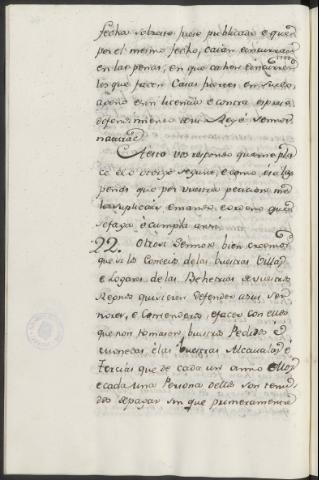 fecha sobresto fuese publicada e que
por el mesmo fecho, caian e incurran
en las penas, en que cahen e incurren
los que facen Casas fuertes en suelo
ageno e sin licencia e contra espreso
defendimiento de su Rey e Sennor
natural
A esto vos respondo que me pla
ce e lo otorgo segunt, e como e so las
penas que por vuestra peticion me
lo suplicais e mando e ordeno que
se faga e cumpla ansi.
22. Otrosi Sennor bien creemos
que si los Concejos de las buestras Villas
e Logares de las Behetrias de vuestros
Regnos quisieren defender a sus Sen
nores, e Comenderos, e facer con ellos
que non tomasen, buestros Pedidos é
monedas é las buestras Alcavalas é
Tercias que de cada un anno ellos
e cada una Persona dellos son tenu
dos de pagar sin que primeramente